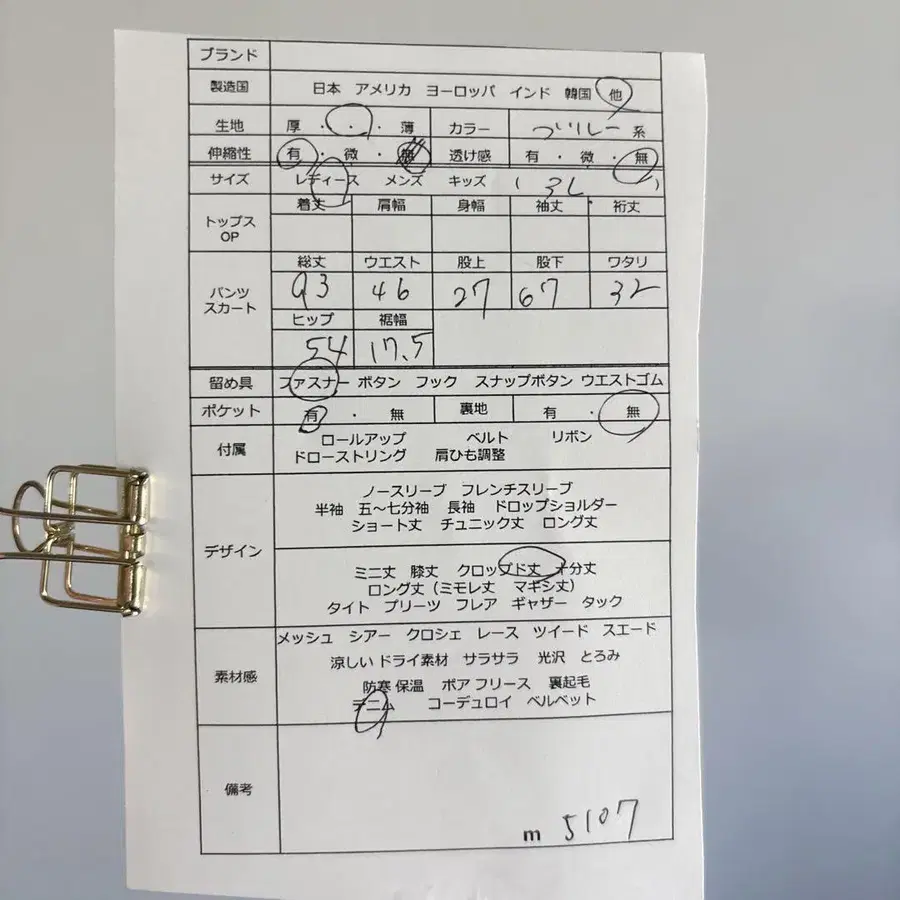 ブランド
製造国 日本 アメリカ ヨーロッパ インド 韓国 他
生地 厚 ・ ・ ・ 薄 カラー ブルー 系
伸縮性 有 ・ 微 ・ 無 透け感 有 ・ 微 ・ 無
サイズ レディース メンズ キッズ ( 3L )
トップス OP 着丈 肩幅 身幅 袖丈 裄丈
パンツ スカート 総丈 ウエスト 股上 股下 ワタリ
93 46 27 67 32
ヒップ 裾幅
54 17.5
留め具 ファスナー ボタン フック スナップボタン ウエストゴム
ポケット 有 ・ 無 裏地 有 ・ 無
付属 ロールアップ ベルト リボン
ドローストリング 肩ひも調整
デザイン ノースリーブ フレンチスリーブ
半袖 五~七分袖 長袖 ドロップショルダー
ショート丈 チュニック丈 ロング丈
ミニ丈 膝丈 クロップド丈 十分丈
ロング丈(ミモレ丈 マキシ丈)
タイト プリーツ フレア ギャザー タック
素材感 メッシュ シアー クロシェ レース ツイード スエード
涼しい ドライ素材 サラサラ 光沢 とろみ
防寒 保温 ボア フリース 裏起毛
デニム コーデュロイ ベルベット
備考
m 5107